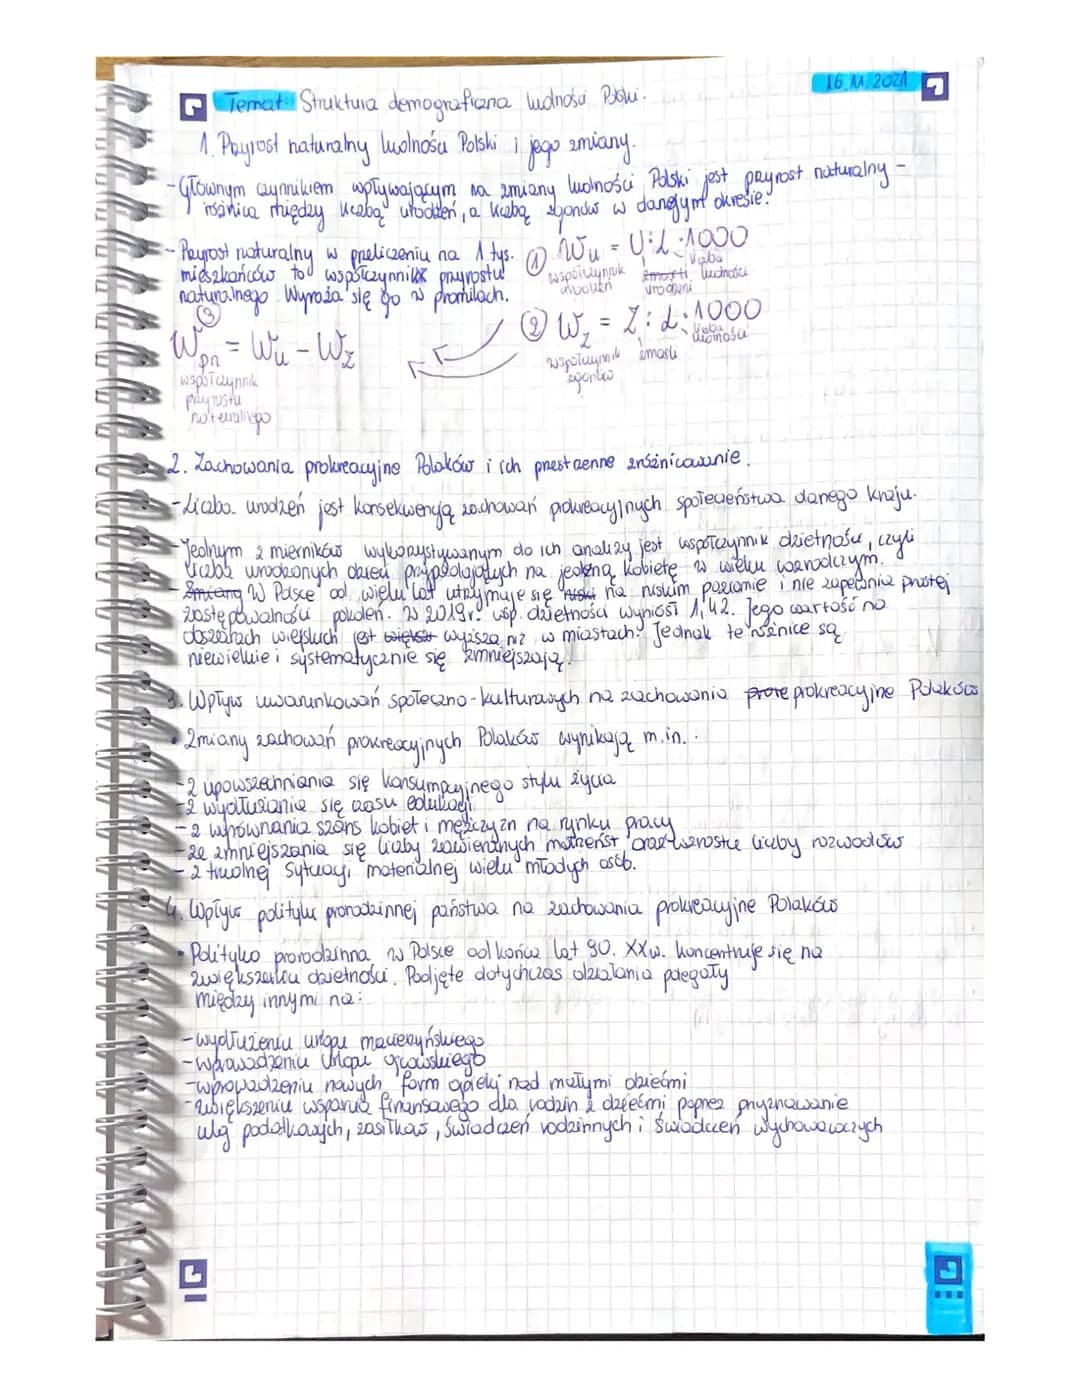 16.11.2021
Temat: Struktura demograficzna ludności Polski.
1. Przyrost naturalny ludności Polski i jego zmiany.
-Głównym czynnikiem wpływającym na zmiany ludności Polski jest przyrost naturalny -
różnica między liczbą urodzeń, a liczbą zgonów w danym okresie.
- Przyrost naturalny w przeliczeniu na 1 tys.
mieszkańców to współczynnik przyrostu
naturalnego. Wyraża się go w promilach.
① Wu = U:L·1000
współczynnik urodzeń
urodzeni
liczba ludności
② Wz = Z:L·1000
współczynnik zgonów
zmarli
liczba ludności
③
Wpn = Wu - Wz
współczynnik
przyrostu
naturalnego
2. Zachowania prokreacyjne Polaków i ich przestrzenne zróżnicowanie.
-Liczba urodzeń jest konsekwencją zachowań prokreacyjnych społeczeństwa danego kraju.
-Jednym z mierników wykorzystywanym do ich analizy jest współczynnik dzietności, czyli
liczba urodzonych dzieci przypadających na jedną kobietę w wieku rozrodczym.
- W Polsce od wielu lat utrzymuje się na niskim poziomie i nie zapewnia prostej
zastępowalności pokoleń. W 2019r. wsp. dzietności wyniósł 1,42. Jego wartość na
obszarach wiejskich jest wyższa niż w miastach. Jednak te różnice są
niewielkie i systematycznie się zmniejszają.
3. Wpływ uwarunkowań społeczno-kulturowych na zachowania prokreacyjne Polaków
• Zmiany zachowań prokreacyjnych Polaków wynikają m.in.:
-z upowszechniania się konsumpcyjnego stylu życia
-z wydłużania się czasu edukacji
-z wyrównania szans kobiet i mężczyzn na rynku pracy
-ze zmniejszania się liczby zawieranych małżeńst oraz wzrostu liczby rozwodów
- z trudnej sytuacji materialnej wielu młodych osób.
4. Wpływ polityki prorodzinnej państwa na zachowania prokreacyjne Polaków
• Polityka prorodzinna w Polsce od końca lat 90. XXw. koncentruje się na
zwiększeniu dzietności. Podjęte dotychczas działania polegały
między innymi na:
-wydłużeniu urlopu macierzyńskiego
-wprowadzeniu urlopu ojcowskiego
-wprowadzeniu nowych form opieki nad małymi dziećmi
-zwiększeniu wsparcia finansowego dla rodzin z dziećmi poprzez przyznawanie
ulg podatkowych, zasiłków, świadczeń rodzinnych i świadczeń wychowawczych